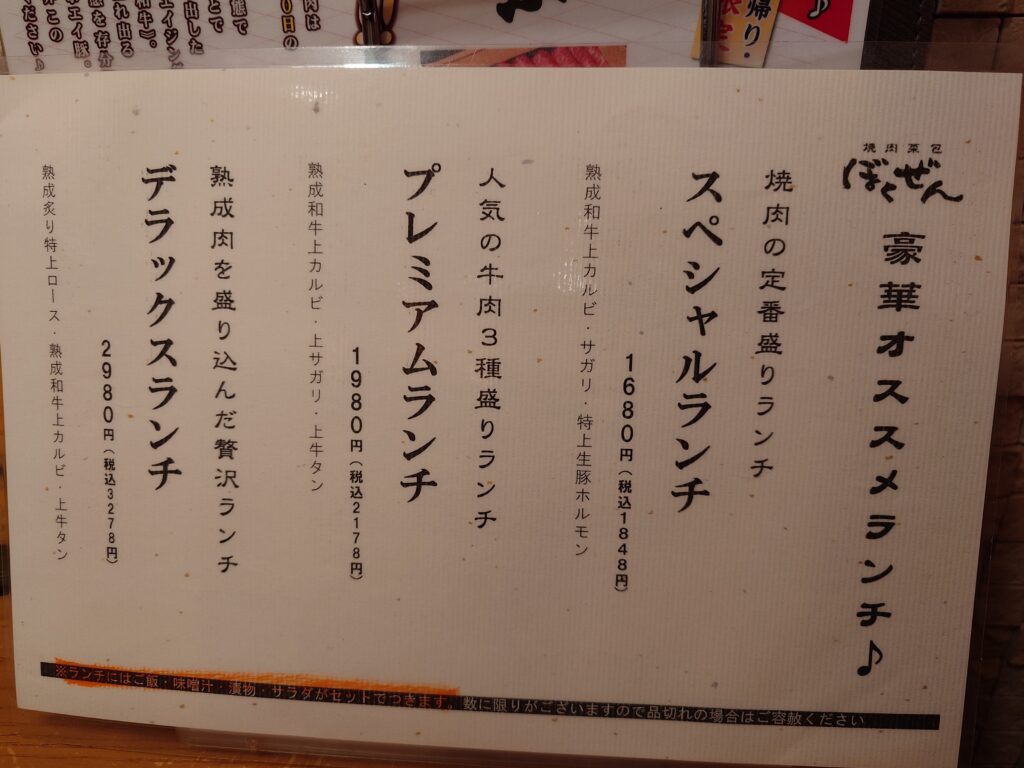 焼肉菜包
ぼくぜん
豪華オススメランチ♪
焼肉の定番盛りランチ
スペシャルランチ
1680円(税込1848円)
熟成和牛上カルビ・サガリ・特上生豚ホルモン
人気の牛肉3種盛りランチ
プレミアムランチ
1980円(税込2178円)
熟成和牛上カルビ・上サガリ・上牛タン
熟成肉を盛り込んだ贅沢ランチ
デラックスランチ
2980円(税込3278円)
熟成炙り特上ロース・熟成和牛上カルビ・上牛タン
※ランチにはご飯・味噌汁・漬物・サラダがセットでつきます。数に限りがございますので品切れの場合はご容赦ください
♪
帰り・
限定
肉は
0日の
態で
とで
出した
エイジング
和牛)。
れ出る
感を存分
エイ豚。
ください♪